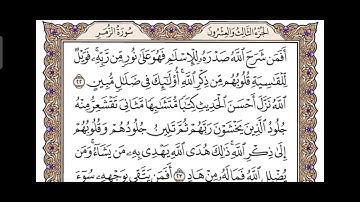 الجزء الثالث والعشرون
سورة الزمر
أَفَمَن شَرَحَ ٱللَّهُ صَدْرَهُۥ لِلْإِسْلَٰمِ فَهُوَ عَلَىٰ نُورٍ مِّن رَّبِّهِۦۚ فَوَيْلٌ
لِّلْقَٰسِيَةِ قُلُوبُهُم مِّن ذِكْرِ ٱللَّهِۚ أُو۟لَٰٓئِكَ فِى ضَلَٰلٍ مُّبِينٍ ٢٢
ٱللَّهُ نَزَّلَ أَحْسَنَ ٱلْحَدِيثِ كِتَٰبًا مُّتَشَٰبِهًا مَّثَانِىَ تَقْشَعِرُّ مِنْهُ
جُلُودُ ٱلَّذِينَ يَخْشَوْنَ رَبَّهُمْ ثُمَّ تَلِينُ جُلُودُهُمْ وَقُلُوبُهُمْ
إِلَىٰ ذِكْرِ ٱللَّهِۚ ذَٰلِكَ هُدَى ٱللَّهِ يَهْدِى بِهِۦ مَن يَشَآءُۚ وَمَن
يُضْلِلِ ٱللَّهُ فَمَا لَهُۥ مِنْ هَادٍ ٢٣ أَفَمَن يَتَّقِى بِوَجْهِهِۦ سُوٓءَ